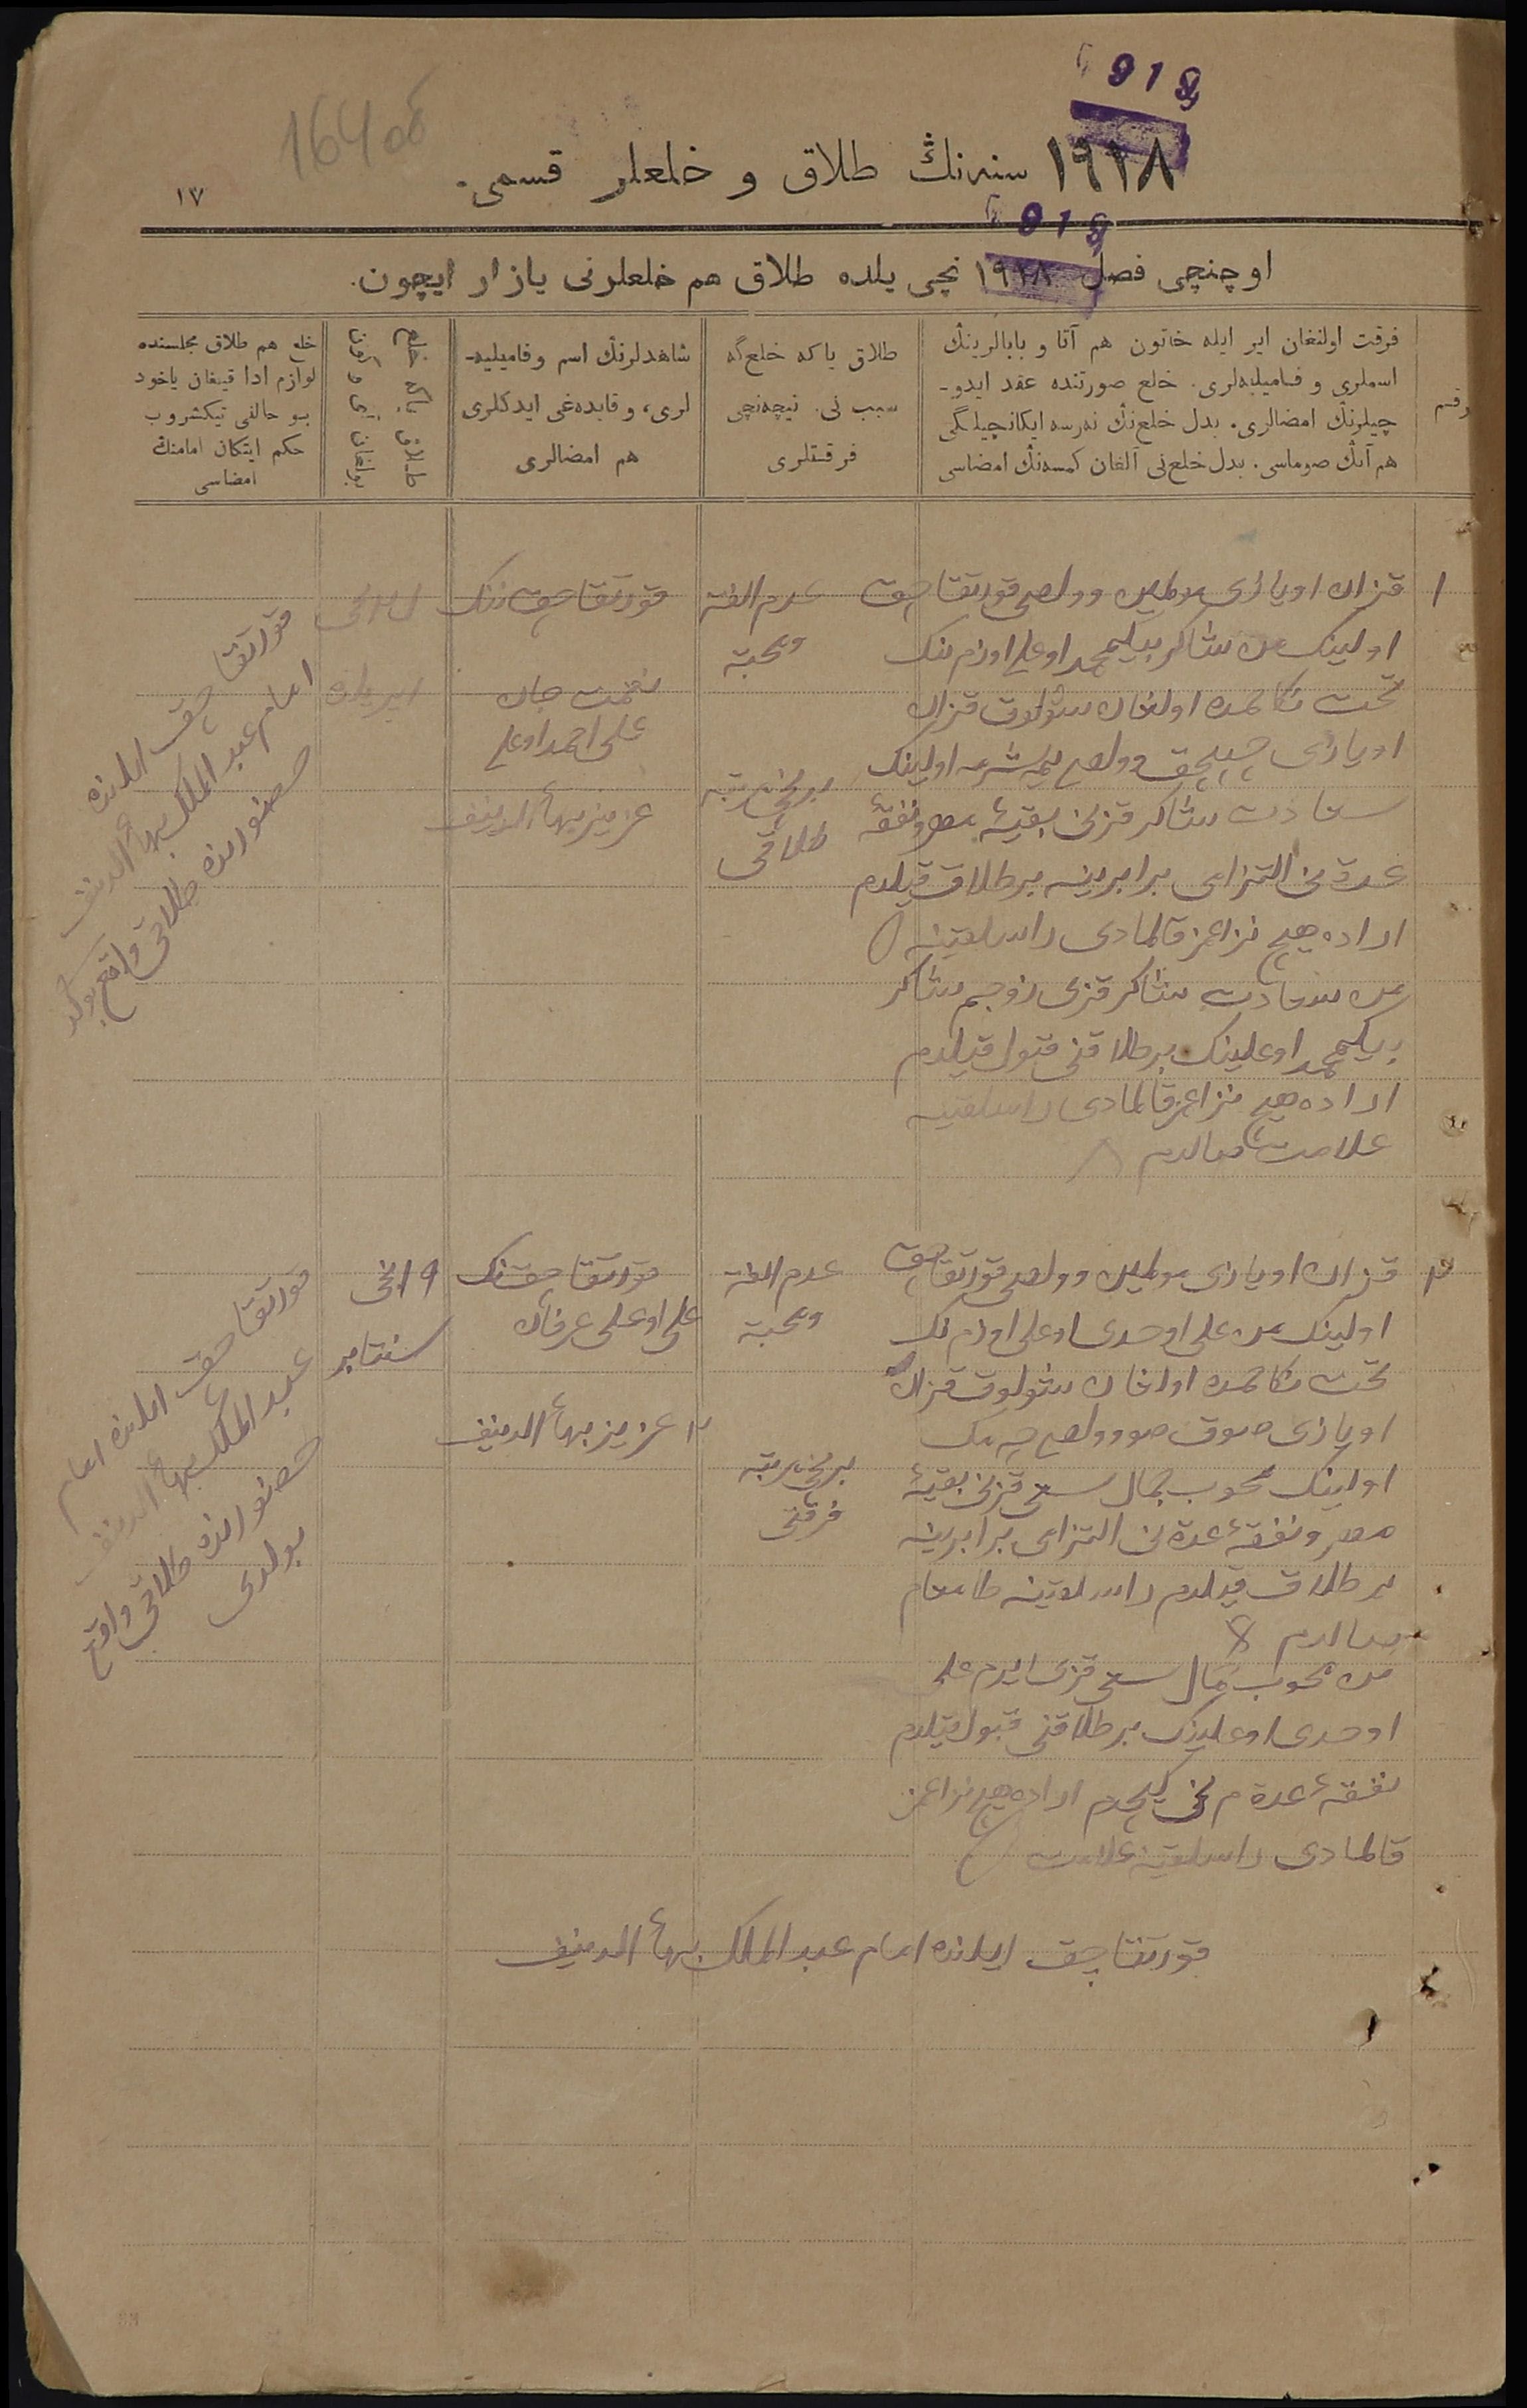 1918
164 об
١٩١٨ سنه‌نڭ طلاق و خلعلر قسمی.
١٧
1918
اوچنچی فصل ١٩١٨ نچی یلده طلاق هم خلعلرنی یازار ایچون.
رقم
فرقت اولنغان ایر ایله خاتون هم آتا و بابالرینڭ
اسملری و فامیلیه‌لری. خلع صورتنده عقد ایدو-
چیلرنڭ امضالری. بدل خلع‌نڭ نه‌رسه ایکانچیلگی
هم آنڭ صوماسی. بدل خلع‌نی آلغان کمسه‌نڭ امضاسی
طلاق یاکه خلع‌گه
سبب نی. نیچه‌نچی
فرقتلری
شاهدلرنڭ اسم وفامیلیه-
لری، و قایده‌غی ایدکلری
هم امضالری
طلاق یاکه خلع
بولغان آی و کون
خلع هم طلاق مجلسنده
لوازم ادا قیلغان یاخود
بو حالنی تیکشروب
حکم ایتکان امامنڭ
امضاسی
١
قزان اویازی وولصی قورتقاچق
اولینک من شاکر بیکمحمد اوغلی اوزم ننک
تحت نکاحمده اولغان شولوق قزان
اویازی وولصی اولینک
سعادت شاکر قزین بقیهٔ مهر و نفقهٔ
عدة نی التزامی برابرینه بر طلاق قیلدم
اراده هیچ نزاعمز قالمادی راسلقینه
من سعادت شاکر قزی زوجم شاکر
بیکمحمد اوغلینک بر طلاقنی قبول قیلدم
اراده هیچ نزاعمز قالمادی راسلقینه
علامت صالدم
عدم الفة
ومحبة
برنچی مرتبه
طلاقی
قورتقاچق ننک
نعمت جان
علی احمد اوغلی
عزیز بهاءالدینف
اپریلده
قورتقاچق ایلنده
امام عبد الملک بهاءالدینف
حضورنده طلاقی واقع بولدی
٢
قزان اویازی وولصی قورتقاچق
اولینک من علی اوحدی اوغلی اوزم نک
تحت نکاحمده اولغان شولوق قزان
اویازی صوق صو وولصی
اولینک محبوب جمال قزین بقیهٔ
مهر و نفقهٔ عدة نی التزامی برابرینه
بر طلاق قیلدم راسلقینه طامغام
صالدم
من محبوب جمال قزی ایرم علی
اوحدی اوغلینک بر طلاقنی قبول قیلدم
نفقهٔ عدة م نی کیچدم اراده هیچ نزاعمز
قالمادی راسلقینه علامت
عدم الفة
ومحبة
برنچی مرتبه
فرقتی
قورتقاچقننک
علی اوغلی عرفان
٢ عزیز بهاءالدینف
١٩ نچی
سنتابر
قورتقاچق ایلنده امام
عبد الملک بهاءالدینف
حضورنده طلاقی واقع
بولدی
قورتقاچق ایلنده امام عبد الملک بهاءالدینف